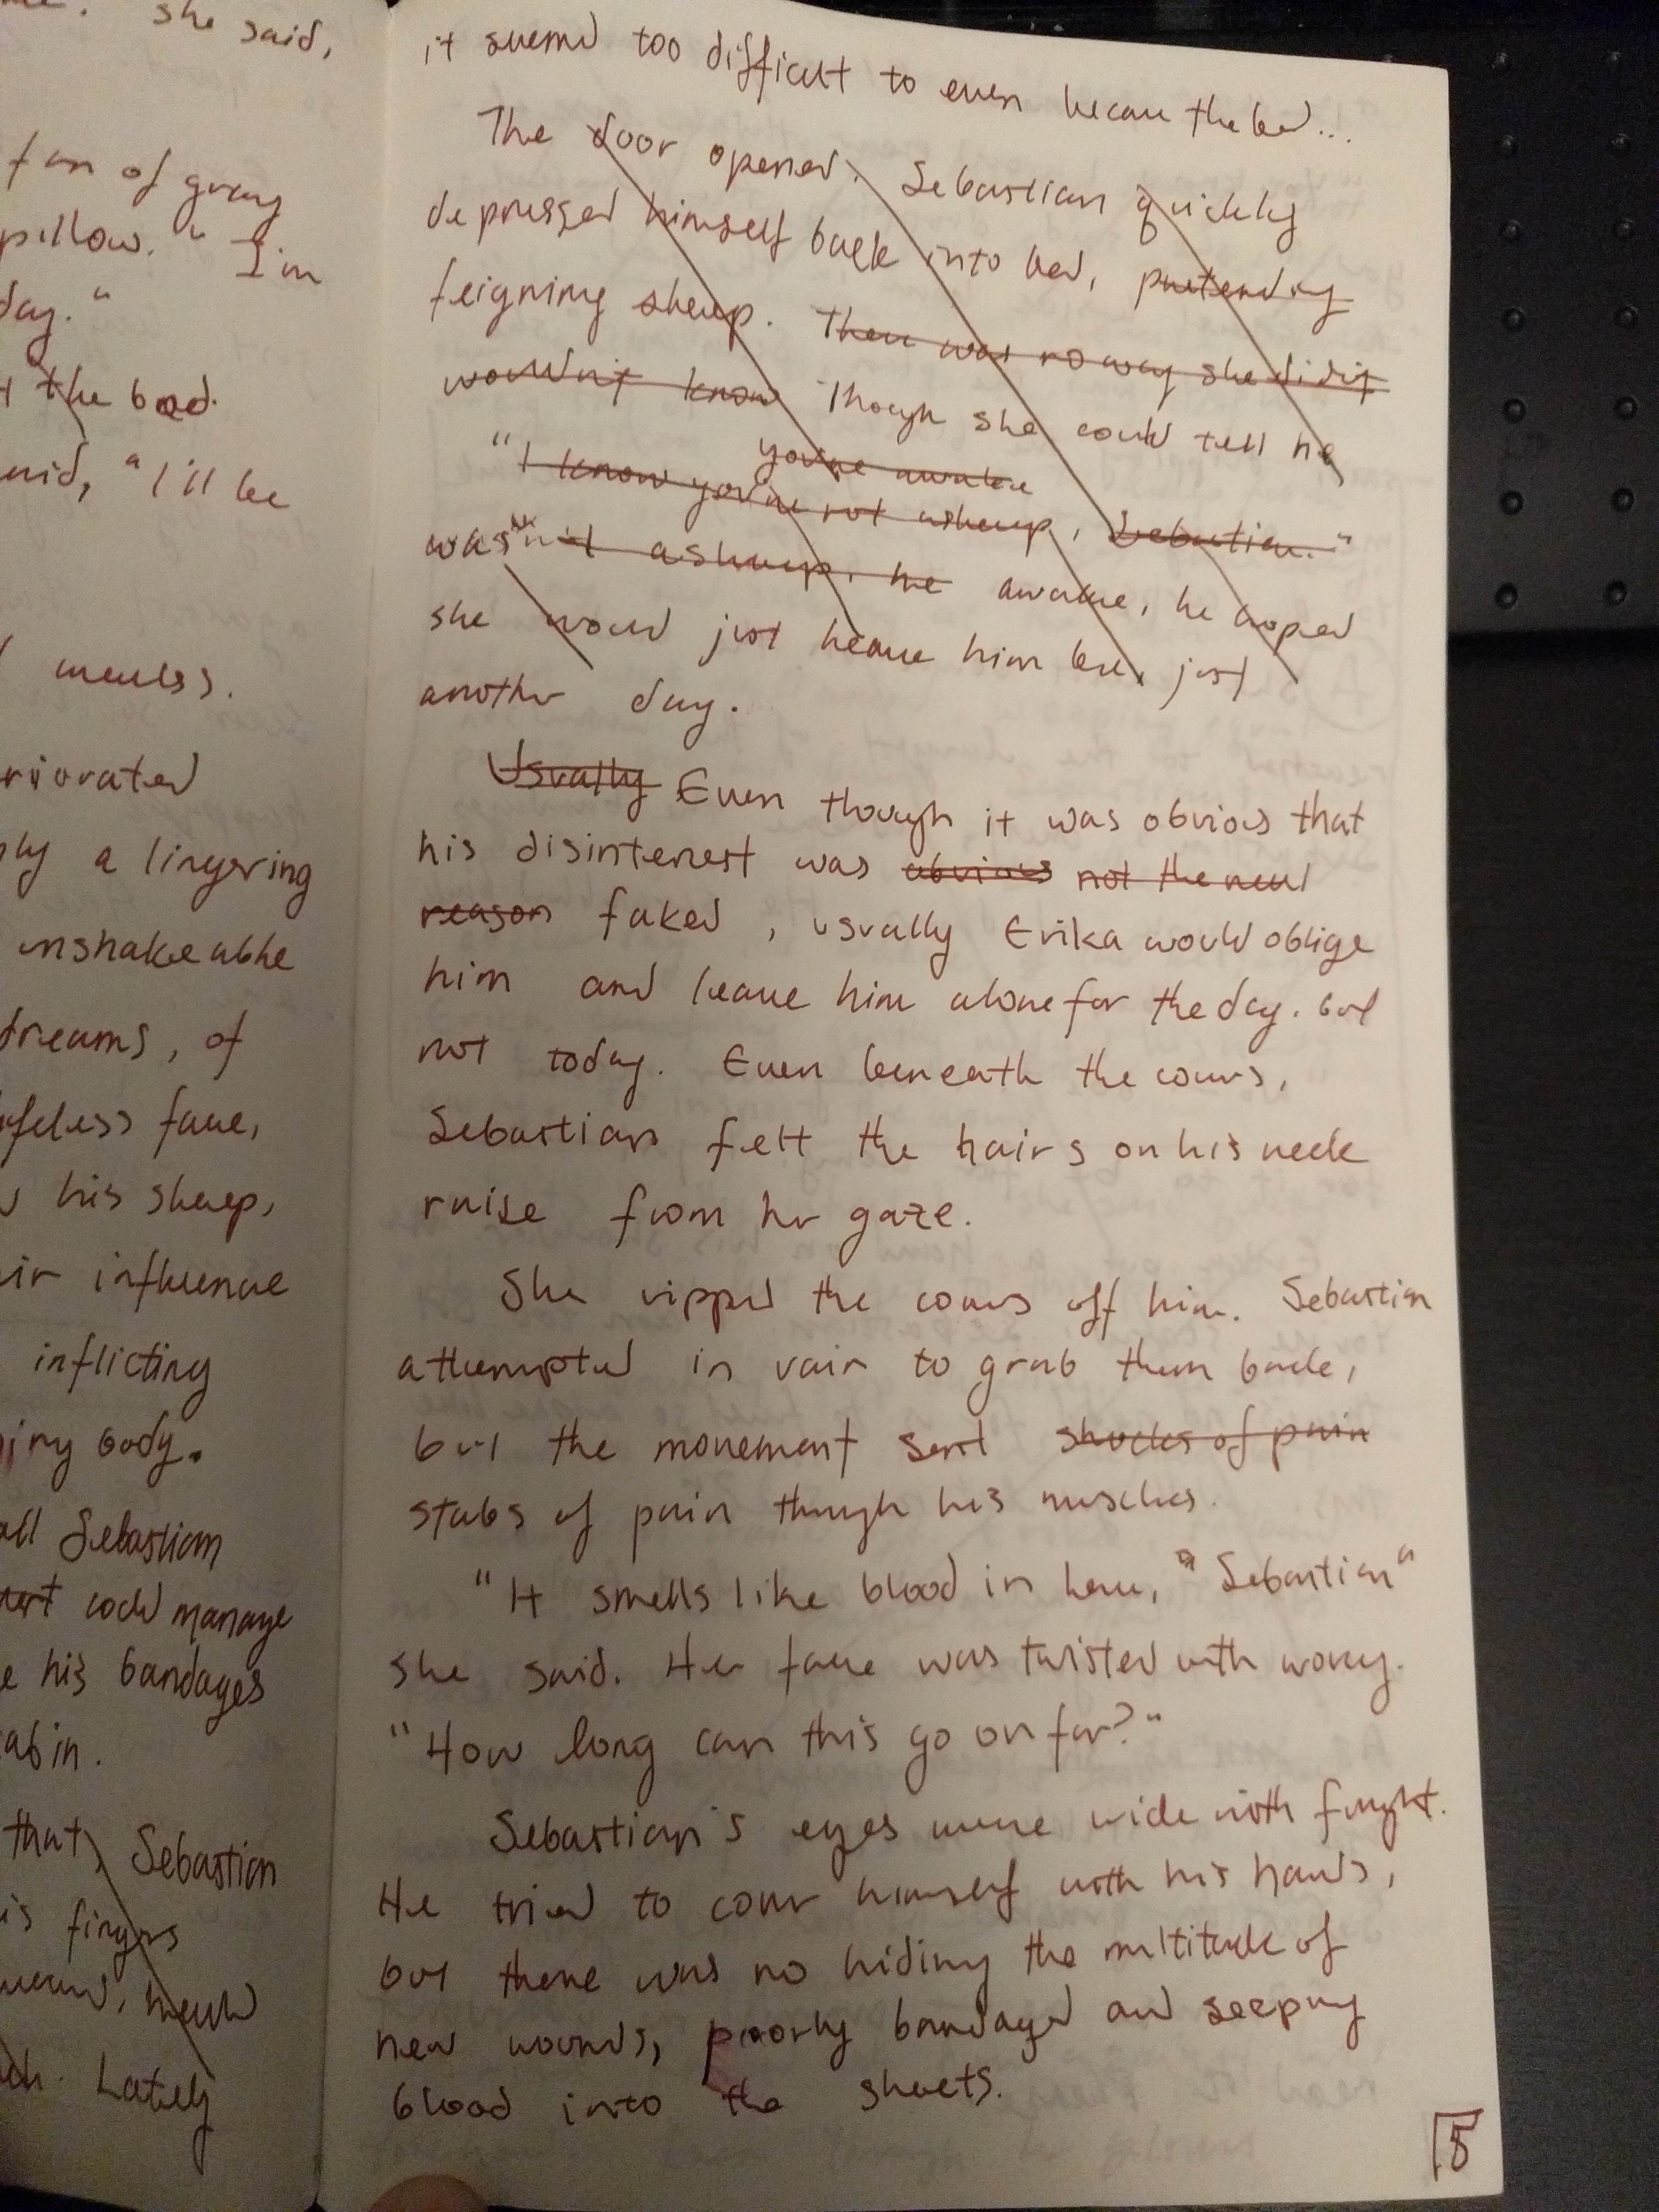 she said,
fan of gray
pillow." I'm
day."
the bed.
said, "I'll be
meuls.
riorated
a lingering
unshakeable
dreams, of
feless face,
his sleep,
influence
inflicting
body.
Sebastian
could manage
his bandages
cabin.
that, Sebastian
fingers
Lately
it seemed too difficult to even leave the bed...
The door opened. Sebastian quickly
depressed himself back into bed, pretending
feigning sleep. There was no way she didn't
wouldn't know Though she could tell he
you're awake
"I know you're not asleep, Sebastian."
wasn't asleep. he awake, he hoped
she would just leave him be, just
another day.
Usually Even though it was obvious that
his disinterest was obvious not the real
reason faked, usually Erika would oblige
him and leave him alone for the day. but
not today. Even beneath the covers,
Sebastian felt the hairs on his neck
raise from her gaze.
She ripped the covers off him. Sebastian
attempted in vain to grab them back,
but the movement sent shocks of pain
stabs of pain though his muscles.
"It smells like blood in here, Sebastian"
she said. Her face was twisted with worry.
"How long can this go on for?"
Sebastian's eyes were wide with fright.
He tried to cover himself with his hands,
but there was no hiding the multitude of
new wounds, poorly bandaged and seeping
blood into the sheets.
5